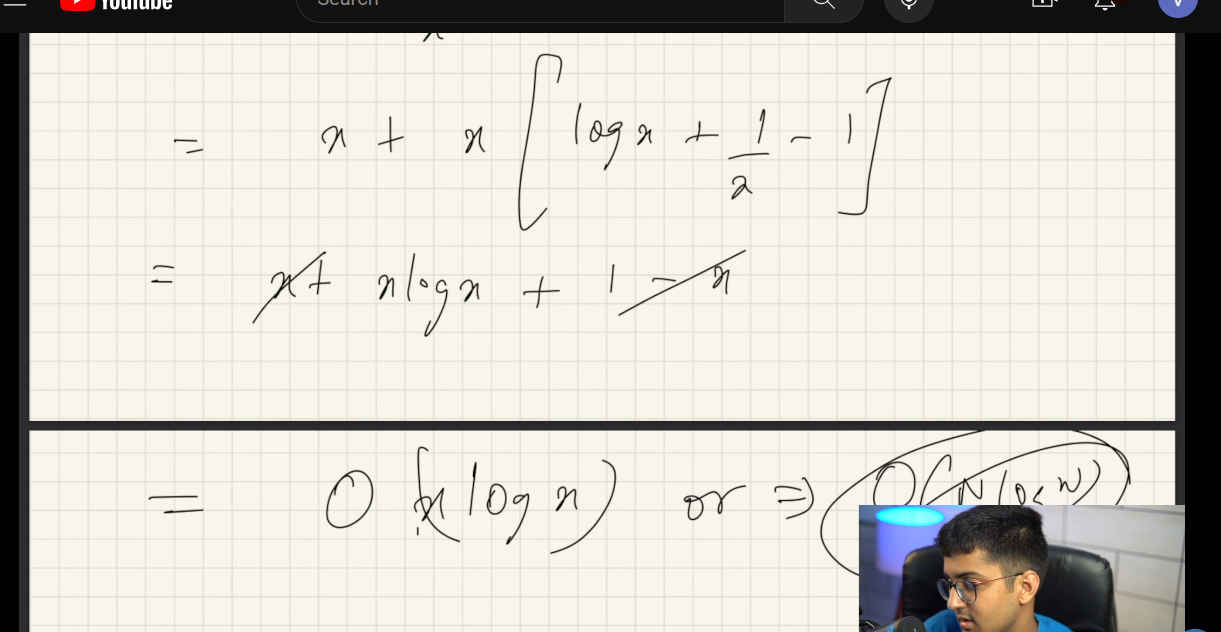 YouTube
Search
V
x
= x + x [ log x + 1/x - 1 ]
= x + x log x + 1 - x
= O(x log x) or ⇒ O(N log N)